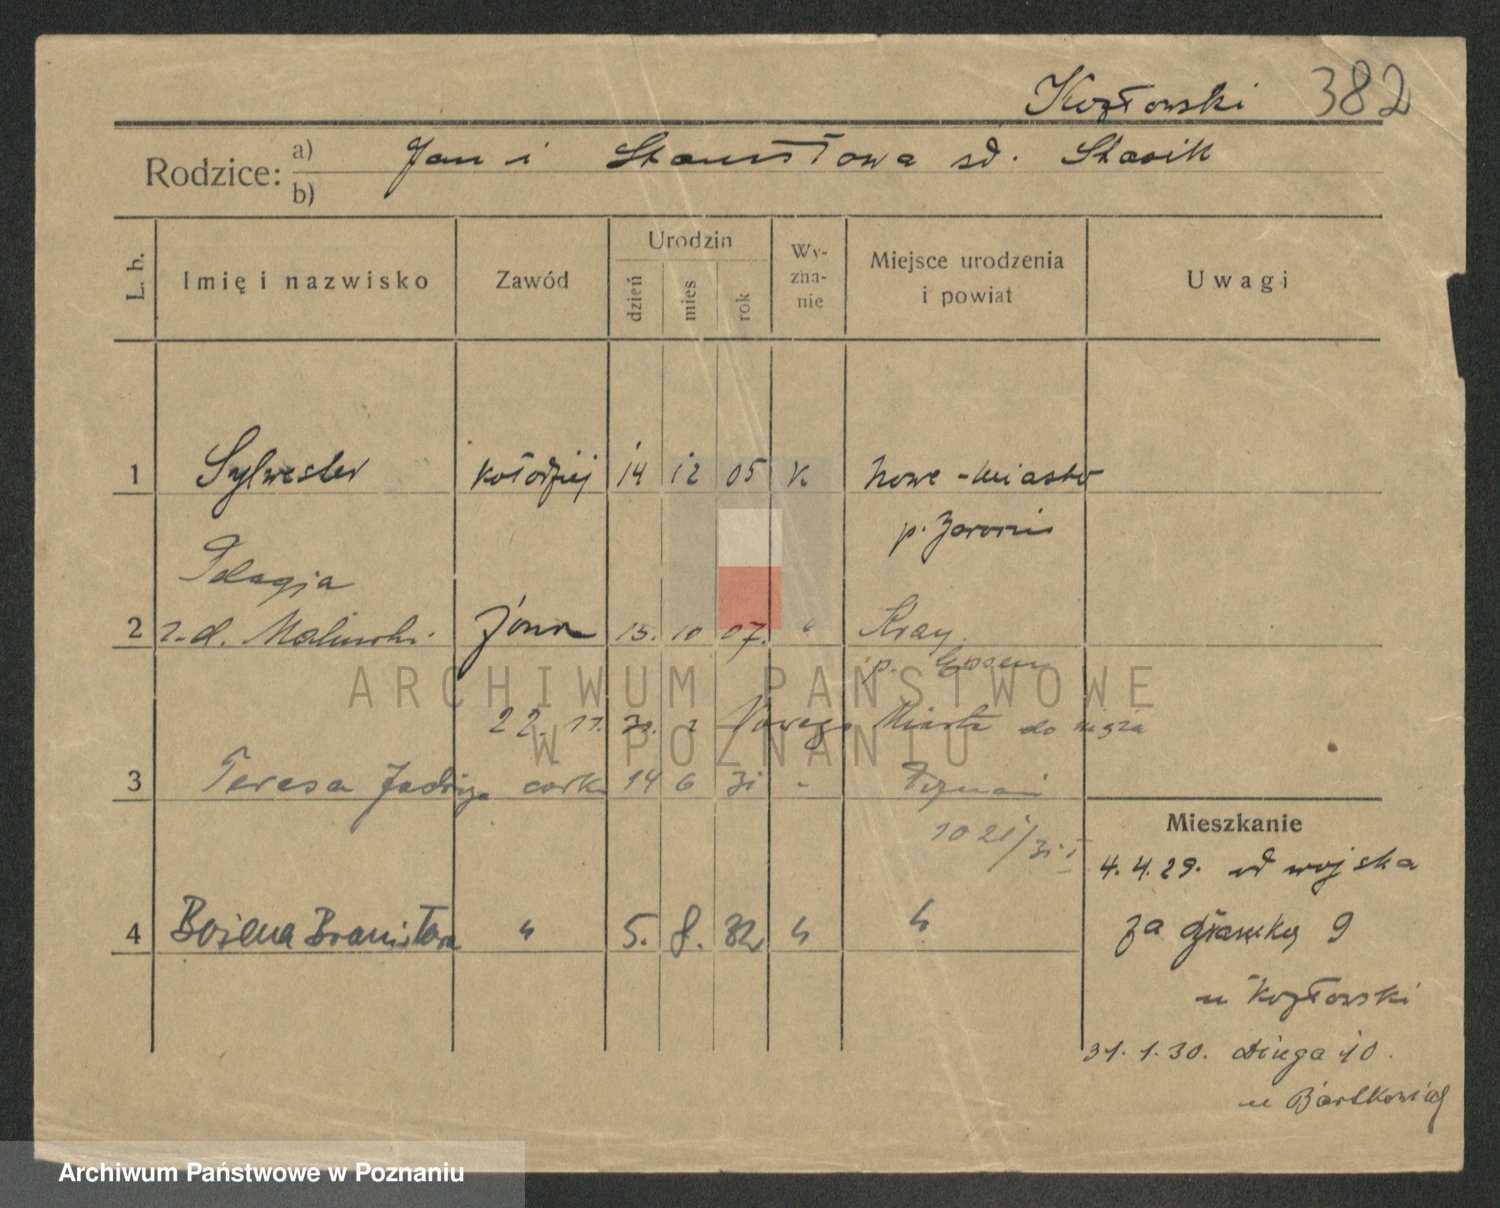 Kozłowski 382
Rodzice: a) Jan i Stanisława
b)
L. b. Imię i nazwisko Zawód Urodzin dzień mies rok Wy-zna-nie Miejsce urodzenia i powiat Uwagi
1 Sylwester kołodziej 14 12 05 k Nowe-Miasto
p.
Pelagja
2 z.d. żona 15. 10 07. " Kray
p.
22. 11. 30. z Nowego Miasta do męża
3 Teresa Jadwiga córka 14 6 31 - Poznań
Mieszkanie
4.4.29. od wojska
4 Bożena Bronisława " 5. 8. 32 " "
9
u Kozłowski
31.1.30. Długa 10.
u Bartkowiak
ARCHIWUM PAŃSTWOWE
W POZNANIU
Archiwum Państwowe w Poznaniu